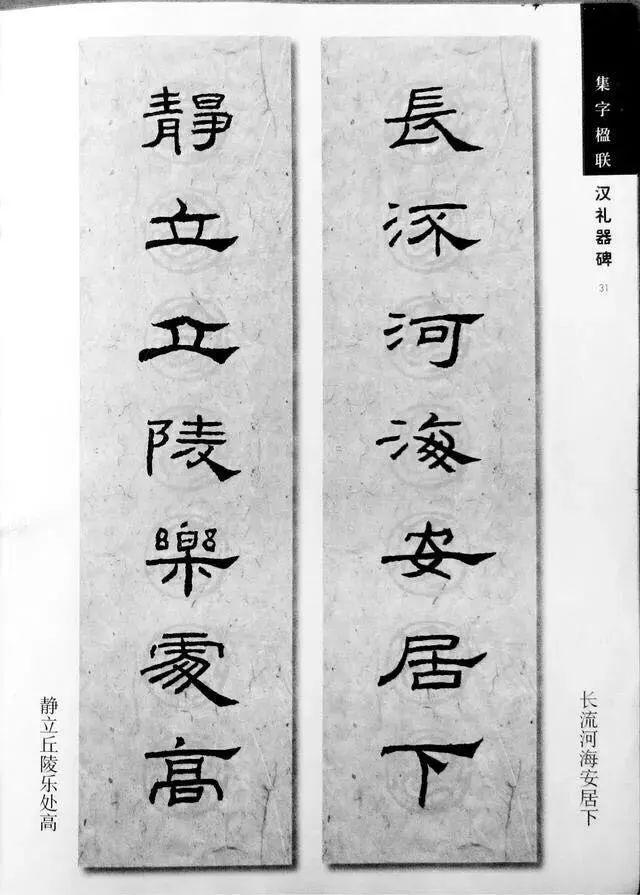 集字楹联 汉礼器碑 31
长流河海安居下
長流河海安居下
靜立丘陵樂處高
静立丘陵乐处高